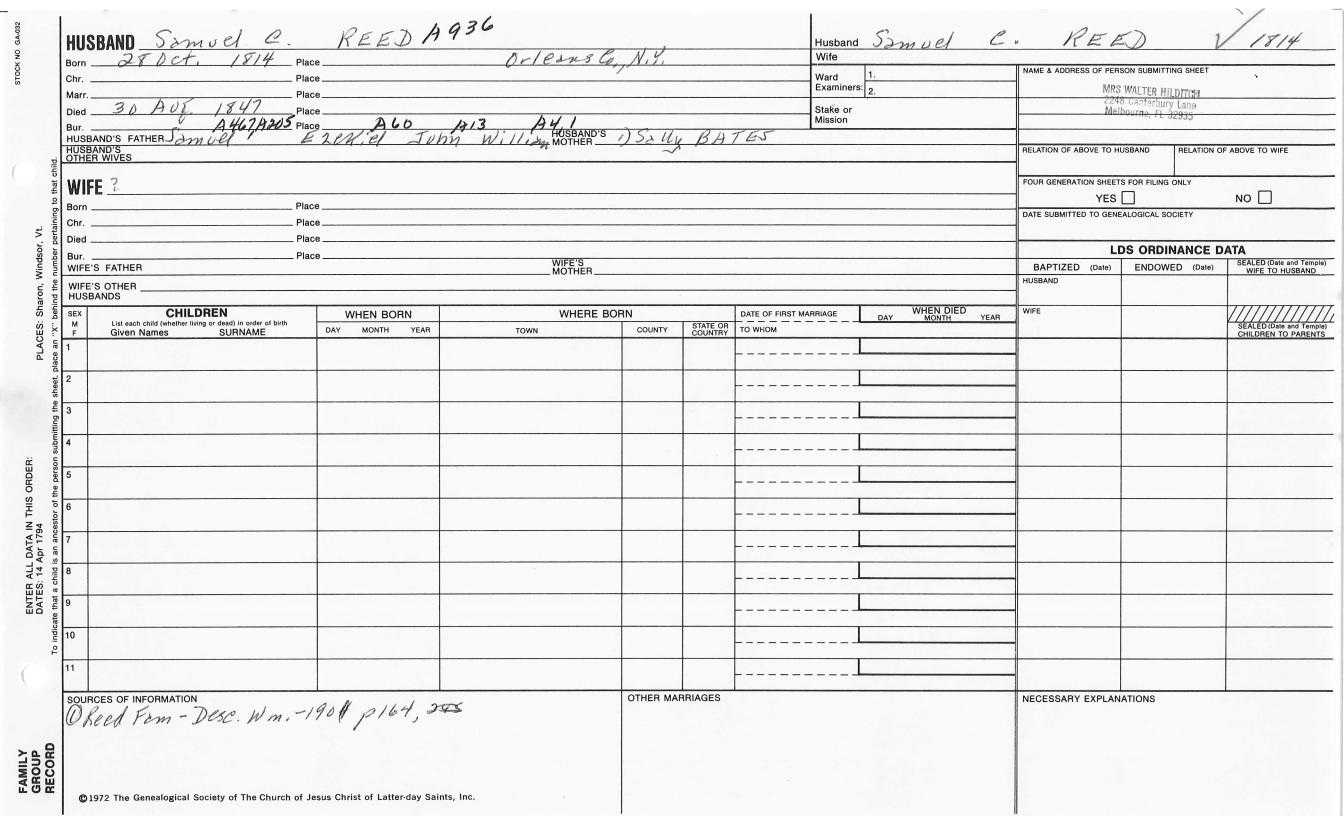 STOCK NO. GA-032
HUSBAND Samuel C. REED A936
Husband Samuel C. REED ✓ 1814
Born 28 Oct. 1814 Place Orleans Co., N.Y.
Wife
Chr. Place
Ward Examiners: 1. 2.
NAME & ADDRESS OF PERSON SUBMITTING SHEET
MRS WALTER HILDITCH
2248 Canterbury Lane
Melbourne, FL 32935
Marr. Place
Died 30 Aug. 1847 Place
Stake or Mission
Bur. A467, A205 Place A60 A13 A4.1
HUSBAND'S FATHER Samuel Ezekiel John William HUSBAND'S MOTHER 1) Sally BATES
HUSBAND'S OTHER WIVES
RELATION OF ABOVE TO HUSBAND RELATION OF ABOVE TO WIFE
WIFE ?
FOUR GENERATION SHEETS FOR FILING ONLY
YES NO
Born Place
DATE SUBMITTED TO GENEALOGICAL SOCIETY
Chr. Place
Died Place
Bur. Place
WIFE'S FATHER WIFE'S MOTHER
WIFE'S OTHER HUSBANDS
LDS ORDINANCE DATA
BAPTIZED (Date) ENDOWED (Date) SEALED (Date and Temple) WIFE TO HUSBAND
HUSBAND
WIFE
SEALED (Date and Temple) CHILDREN TO PARENTS
SEX M F
CHILDREN
List each child (whether living or dead) in order of birth
Given Names SURNAME
WHEN BORN
DAY MONTH YEAR
WHERE BORN
TOWN COUNTY STATE OR COUNTRY
DATE OF FIRST MARRIAGE
TO WHOM
WHEN DIED
DAY MONTH YEAR
1
2
3
4
5
6
7
8
9
10
11
SOURCES OF INFORMATION
① Reed Fam - Desc. Wm. - 1901 p164,
OTHER MARRIAGES
NECESSARY EXPLANATIONS
©1972 The Genealogical Society of The Church of Jesus Christ of Latter-day Saints, Inc.
FAMILY GROUP RECORD
ENTER ALL DATA IN THIS ORDER:
DATES: 14 Apr 1794
PLACES: Sharon, Windsor, Vt.
To indicate that a child is an ancestor of the person submitting the sheet, place an "X" behind the number pertaining to that child.